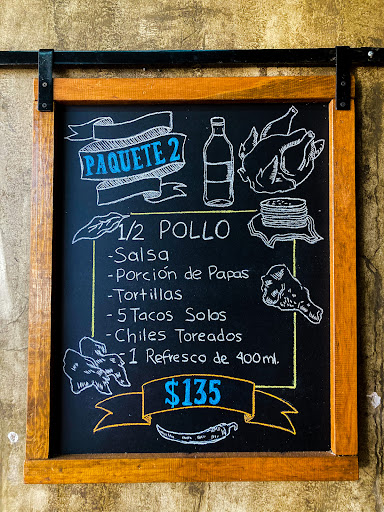 PAQUETE 2
1/2 POLLO
- Salsa
- Porción de Papas
- Tortillas
- 5 Tacos Solos
- Chiles Toreados
- 1 Refresco de 400ml.
$135